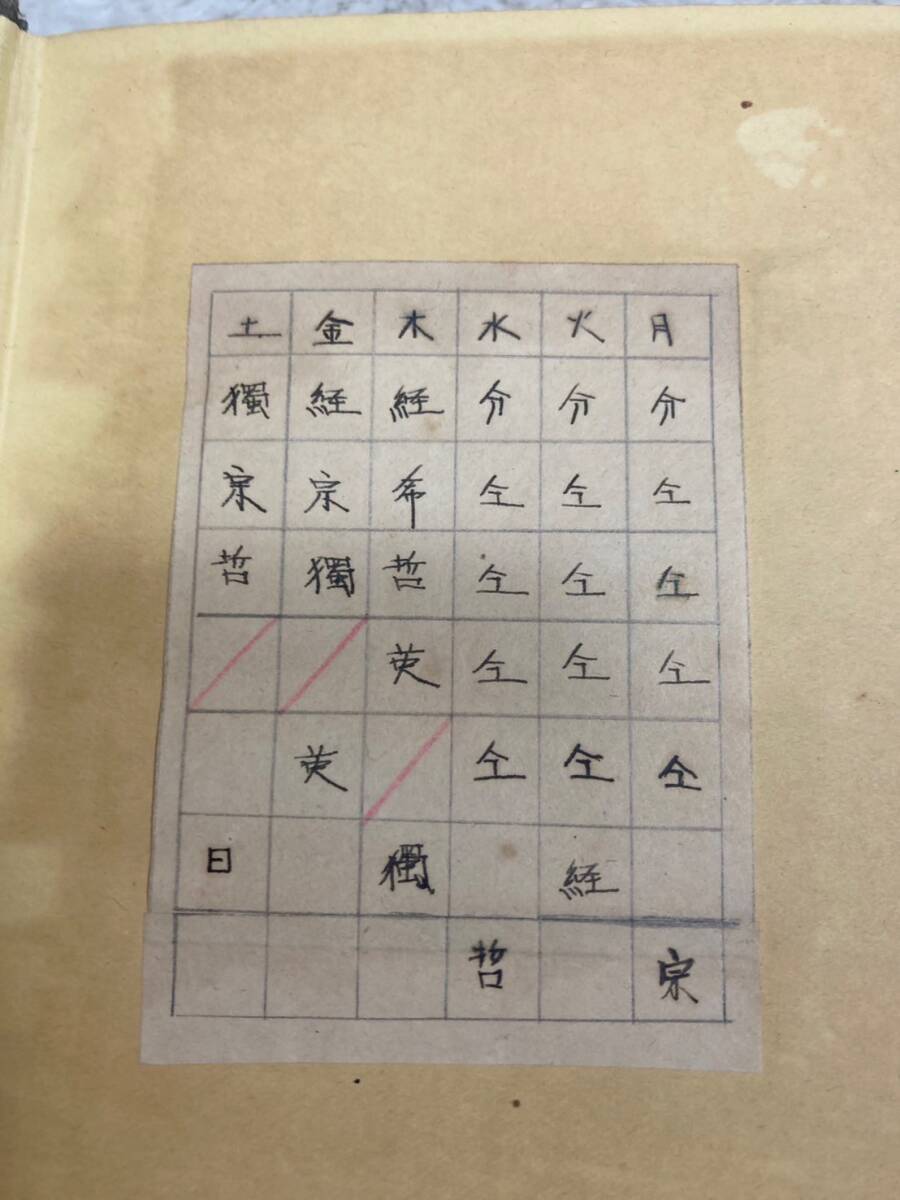 土 金 木 水 火 月
獨 経 経 分 分 分
宗 宗 希 仝 仝 仝
哲 獨 哲 仝 仝 仝
英 仝 仝 仝
英 仝 仝 仝
日 獨 経
哲 宗